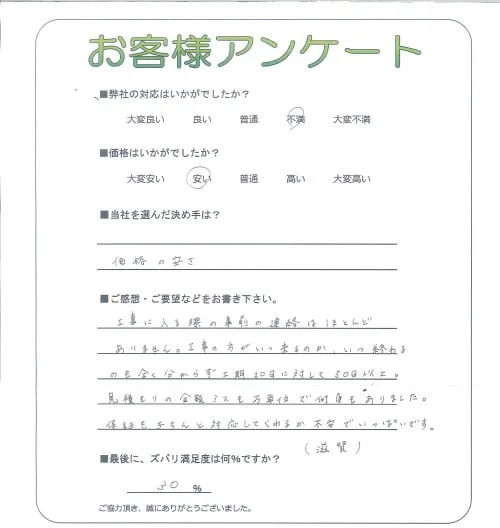 お客様アンケート
■弊社の対応はいかがでしたか？
大変良い 良い 普通 不満 大変不満
■価格はいかがでしたか？
大変安い 安い 普通 高い 大変高い
■当社を選んだ決め手は？
価格の安さ
■ご感想・ご要望などをお書き下さい。
工事に入る際の事前の連絡はほとんど
ありません。工事の方がいつ来るのか、いつ終わる
のも全く分からず工期20日に対して50日以上。
見積もりの金額ミスも万単位で何度もありました。
保証もきちんと対応してくれるか不安でいっぱいです。
(滋賀)
■最後に、ズバリ満足度は何%ですか？
30 %
ご協力頂き、誠にありがとうございました。